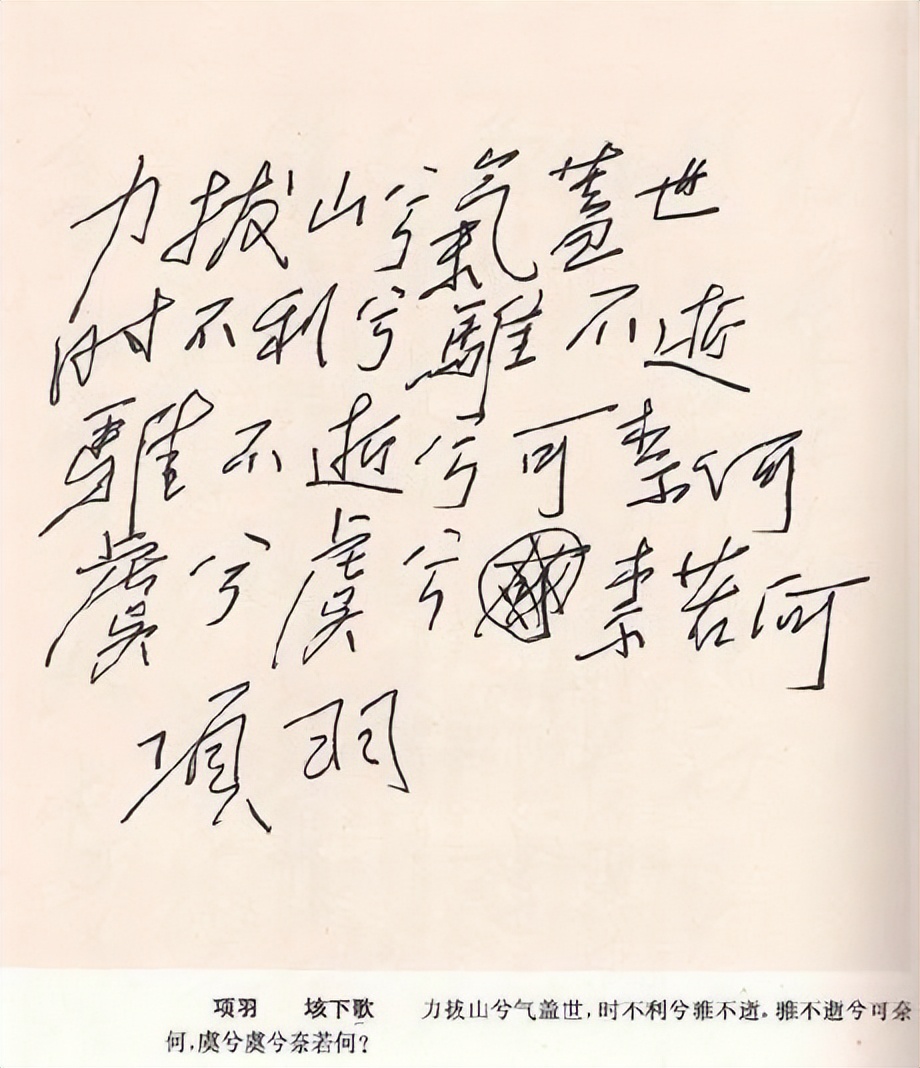 力拔山兮氣蓋世
时不利兮騅不逝
騅不逝兮可柰何
虞兮虞兮柰若何
項羽
项羽 垓下歌 力拔山兮气盖世,时不利兮骓不逝。骓不逝兮可奈
何,虞兮虞兮奈若何?